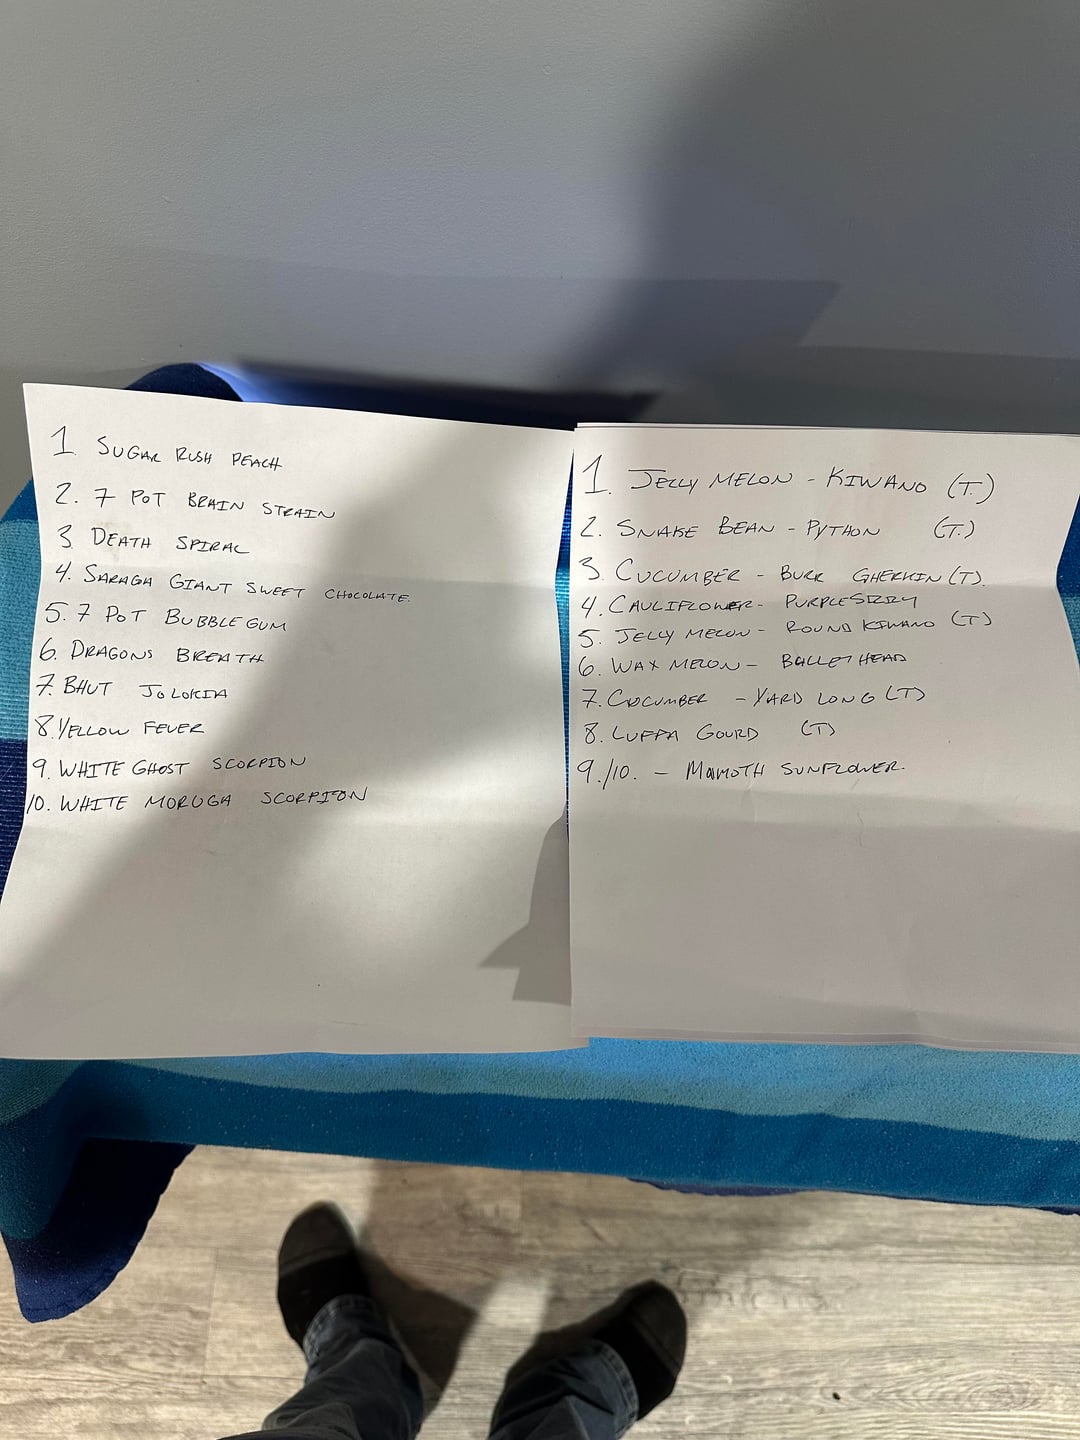 1 SUGAR RUSH PEACH
2. 7 POT BRAIN STRAIN
3 DEATH SPIRAL
4. SARAGA GIANT SWEET CHOCOLATE.
5. 7 POT BUBBLEGUM
6. DRAGONS BREATH
7. BHUT JOLOKIA
8. YELLOW FEVER
9. WHITE GHOST SCORPION
10. WHITE MORUGA SCORPION
1. JELLY MELON - KIWANO (T.)
2. SNAKE BEAN - PYTHON (T.)
3. CUCUMBER - BURR GHERKIN (T).
4. CAULIFLOWER - PURPLE
5. JELLY MELON - ROUND KIWANO (T)
6. WAX MELON - BULLET HEAD
7. CUCUMBER - YARD LONG (T)
8. LUFFA GOURD (T)
9./10. - MAMOTH SUNFLOWER.